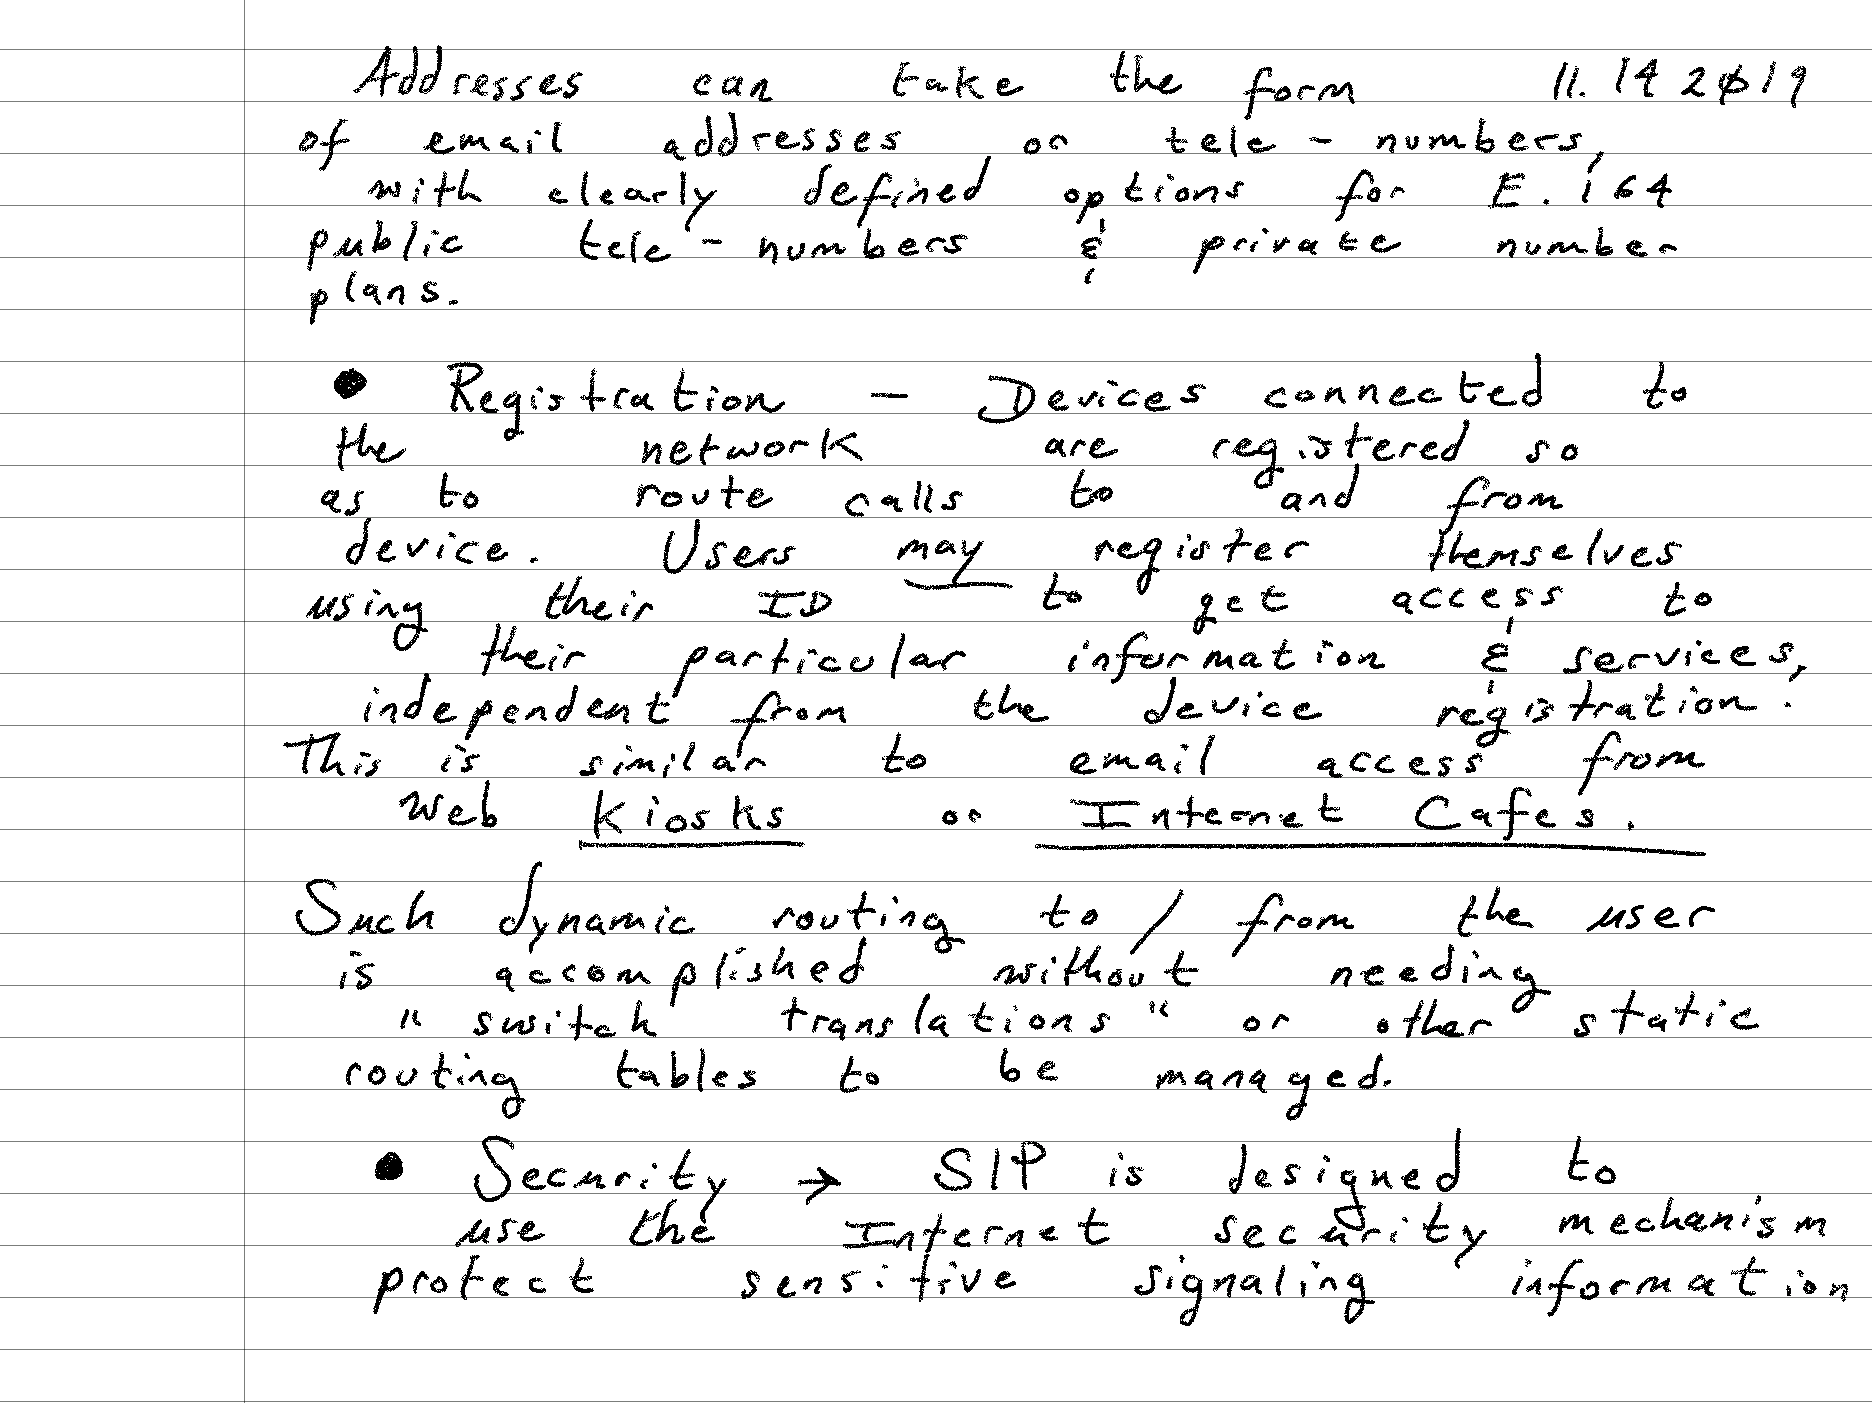 Addresses can take the form 11. 14 2019
of email addresses or tele - numbers,
with clearly defined options for E. 164
public tele - numbers & private number
plans.
● Registration — Devices connected to
the network are registered so
as to route calls to and from
device. Users may register themselves
using their ID to get access to
their particular information & services,
independent from the device registration.
This is similar to email access from
Web Kiosks or Internet Cafes.
Such dynamic routing to / from the user
is accomplished without needing
"switch translations" or other static
routing tables to be managed.
● Security → SIP is designed to
use the Internet security mechanism
protect sensitive signaling information